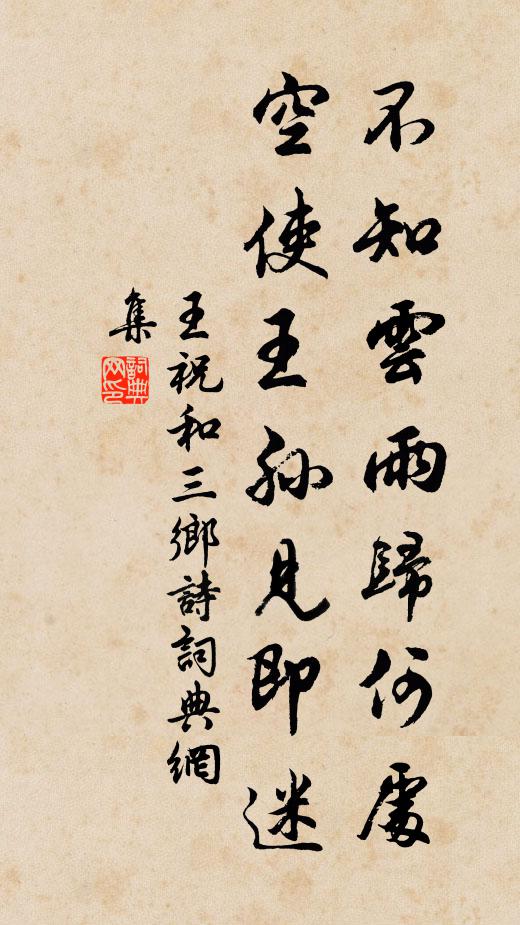 不知雲雨歸何處
空使王孫見即迷
王祝和三鄉詩詞典網
集
詞典網印